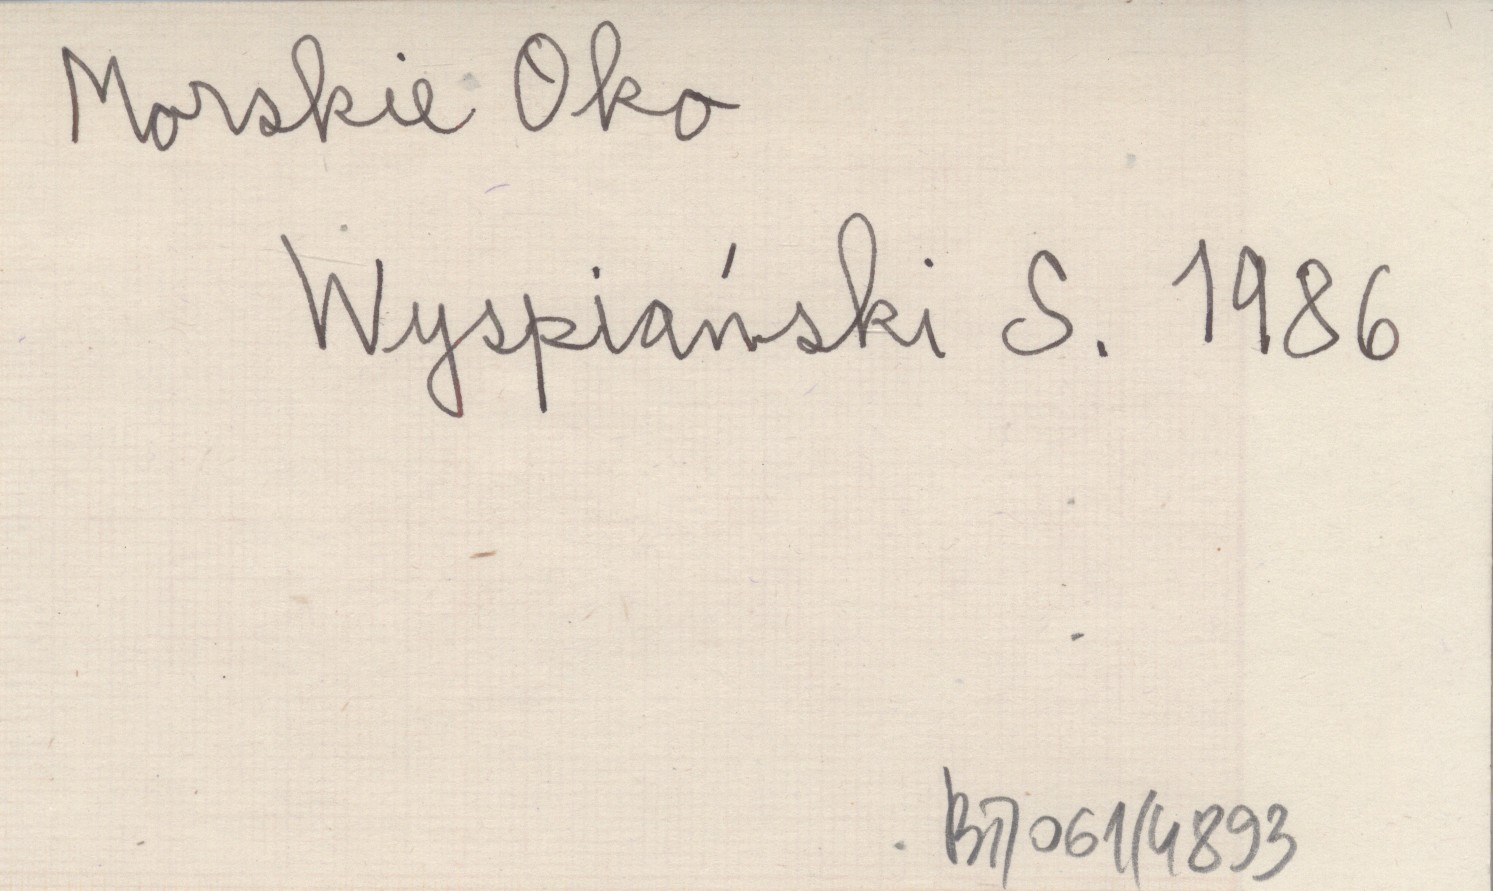 Morskie Oko
Wyspiański S. 1986
BT/061/4893